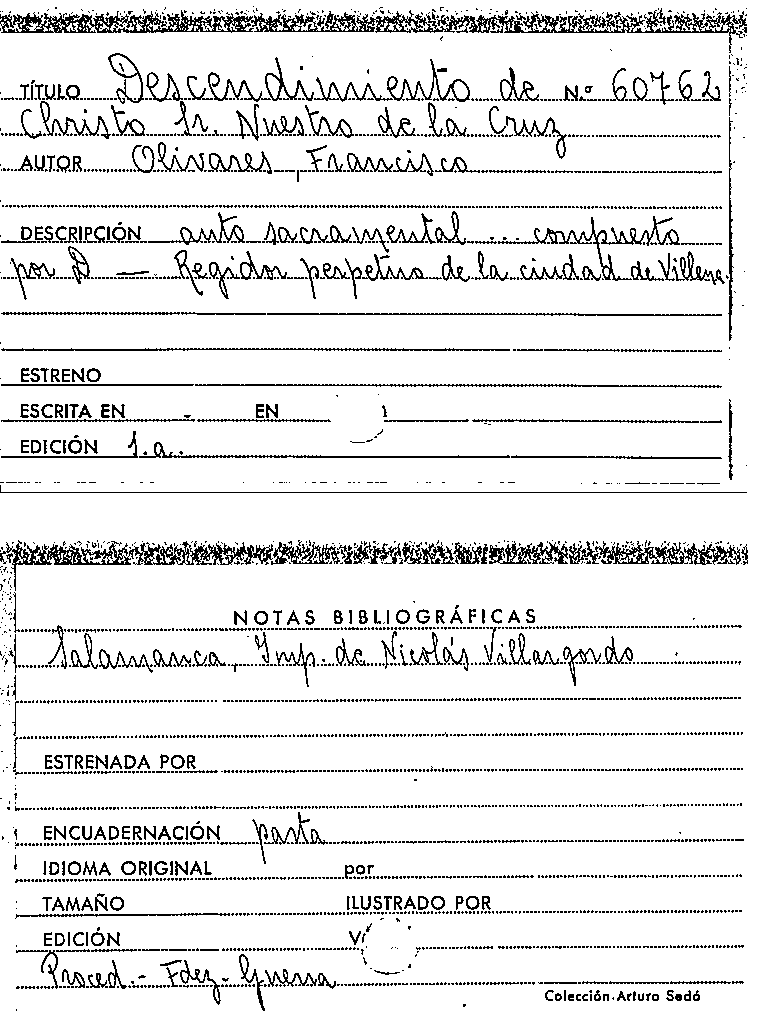 TÍTULO Descendimiento de N.º 60762
Christo Sr. Nuestro de la Cruz
AUTOR Olivares, Francisco
DESCRIPCIÓN auto sacramental ... compuesto
por D — Regidor perpetuo de la ciudad de Villena.
ESTRENO
ESCRITA EN - EN
EDICIÓN S.a.
NOTAS BIBLIOGRÁFICAS
Salamanca, Imp. de Nicolás Villargordo
ESTRENADA POR
ENCUADERNACIÓN pasta
IDIOMA ORIGINAL por
TAMAÑO ILUSTRADO POR
EDICIÓN
Proced.- Fdez-Guerra
Colección Arturo Sedó